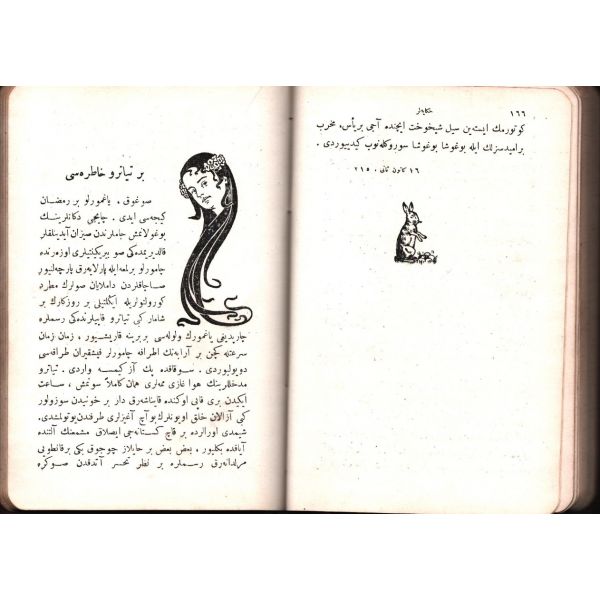 ١٦٦
حكايه‌لر
كوتورمك ايسته‌ين سيل شيخوخت ايچنده آجى بر يأس، مخرب
بر اميدسزلك ايله بوغوشا بوغوشا سوروكلنوب كيدييوردى .
١٦ كانون ثانى ، ٢١٥
بر تياترو خاطره‌سى
صوغوق ، ياغمورلو بر رمضان
كيجه‌سى ايدى . چايجى دكانلرينك
بوغولانمش جاملرندن صيزان آيدينلقلر
قالديريمده‌كى صو بيريكينتيلرى اوزه‌رنده
چامورلو بر لمعه ايله پارلايه‌رق پارچه‌لنيور
صاچاقلردن داملايان صولرك مطرد
كورولتولريله ايكلتيلى بر روزكارك بر
شامار كبى تياترو قاپيلرنده‌كى رسملره
چارپديغى ياغمورك ولوله‌سى بربرينه قاريشييور ، زمان زمان
سرعتله كچن بر آرابه‌نك اطرافه چامورلر فيشقيران طراقه‌سى
دويولويوردى . سوقاقده پك آز كيمسه واردى . تياترو
مدخللرينك هوا غازى ممه‌لرى همان كاملاً سونمش ، ساعت
ايكيدن برى قاپى اوكنده قايناشه‌رق دار بر خونيدن سوزولور
كبى آزالان خلق اويونلرك بو آچ آغيزلرى طرفندن يوتولمشدى.
شيمدى اورالرده بر قاچ كستانه‌جى ايصلاق مشمعنك آلتنده
آياقده بكليور . بعض بعض بر حايلاز چوجوق يكى برقانطويى
ميرلدانه‌رق رسملره بر نظر تحسر آتدقدن صوكره